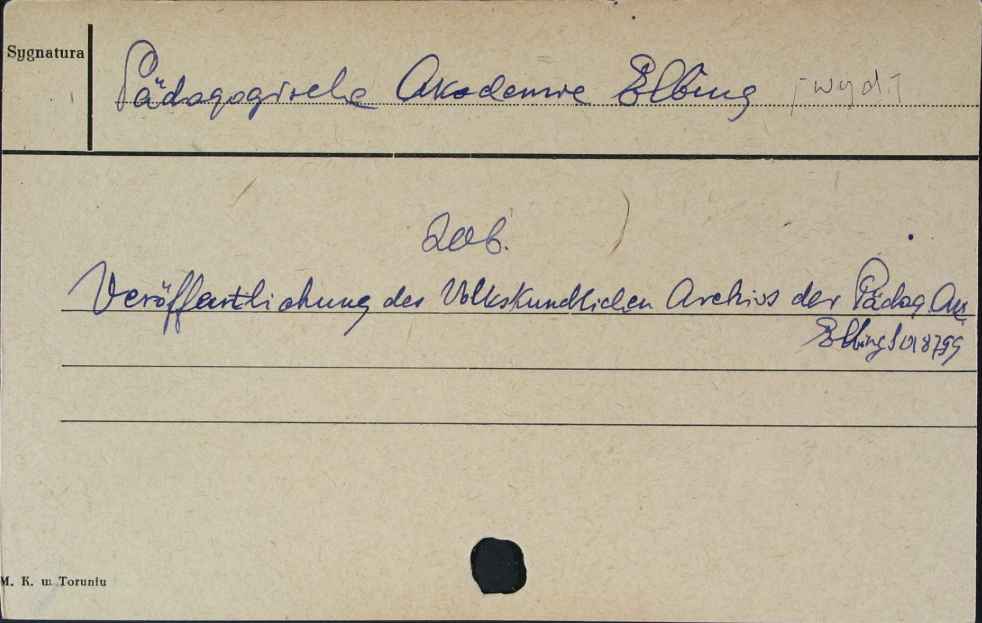 Sygnatura
Pädagogische Akademie Elbing /-wyd-/
Zob.
Veröffentlichung des Volkskundlichen Archivs der Pädag. Ak.
Elbing
M. K. w Toruniu